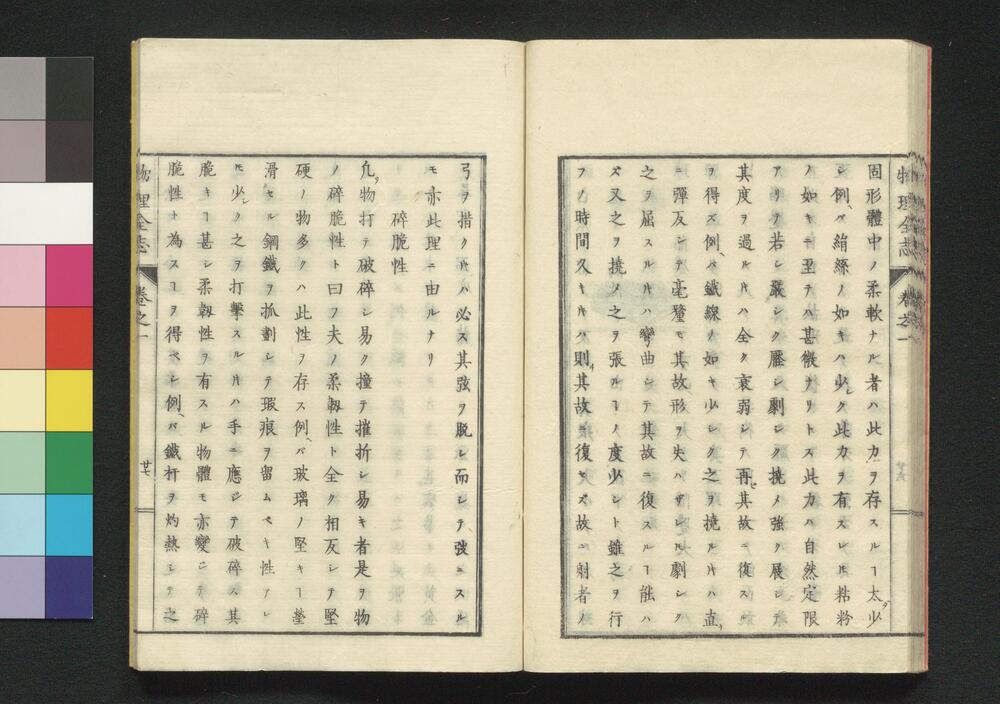 固形體中ノ柔軟ナル者ハ此力ヲ存スルヿ太少
シ例ヘバ絹絲ノ如キハ少ク此力ヲ有スレ𪜈粘粉
ノ如キニ至テハ甚微ナリトス此力ハ自然定限
アリテ若シ嚴シク壓シ劇シク撓メ強ク展シテ
其度ヲ過ルキハ全ク衰弱シテ再其故ニ復スル
ヲ得ズ例ヘバ鐵線ノ如キ少シク之ヲ撓ルキハ直
ニ彈反シテ毫釐モ其故形ヲ失ハザレ𪜈劇シク
之ヲ屈スルキハ彎曲シテ其故ニ復スルヿ能ハ
ズ又之ヲ撓メ之ヲ張ルヿノ度少シト雖之ヲ行
フノ時間久キキハ則其故ニ復セズ故ニ射者ノ
物理全志
卷之一
弓ヲ措クキハ必ス其弦ヲ脫シ而シテ弢ニスル
モ亦此理ニ由ルナリ
碎脆性
凢物打テ破碎シ易ク撞テ摧折シ易キ者是ヲ物
ノ碎脆性ト曰フ夫ノ柔韌性ト全ク相反シテ堅
硬ノ物多クハ此性ヲ存ス例ヘバ玻璃ノ堅キヿ瑩
滑セル鋼鐵ヲ抓劃シテ瑕痕ヲ留ムベキ性アレ
𪜈少シク之ヲ打擊スルキハ手ニ應ジテ破碎ス其
脆キヿ甚シ柔韌性ヲ有スル物體モ亦變ジテ碎
脆性ト為スヿヲ得ベシ例ヘバ鐵杆ヲ灼熱シテ之
物理全志
卷之一
廿七